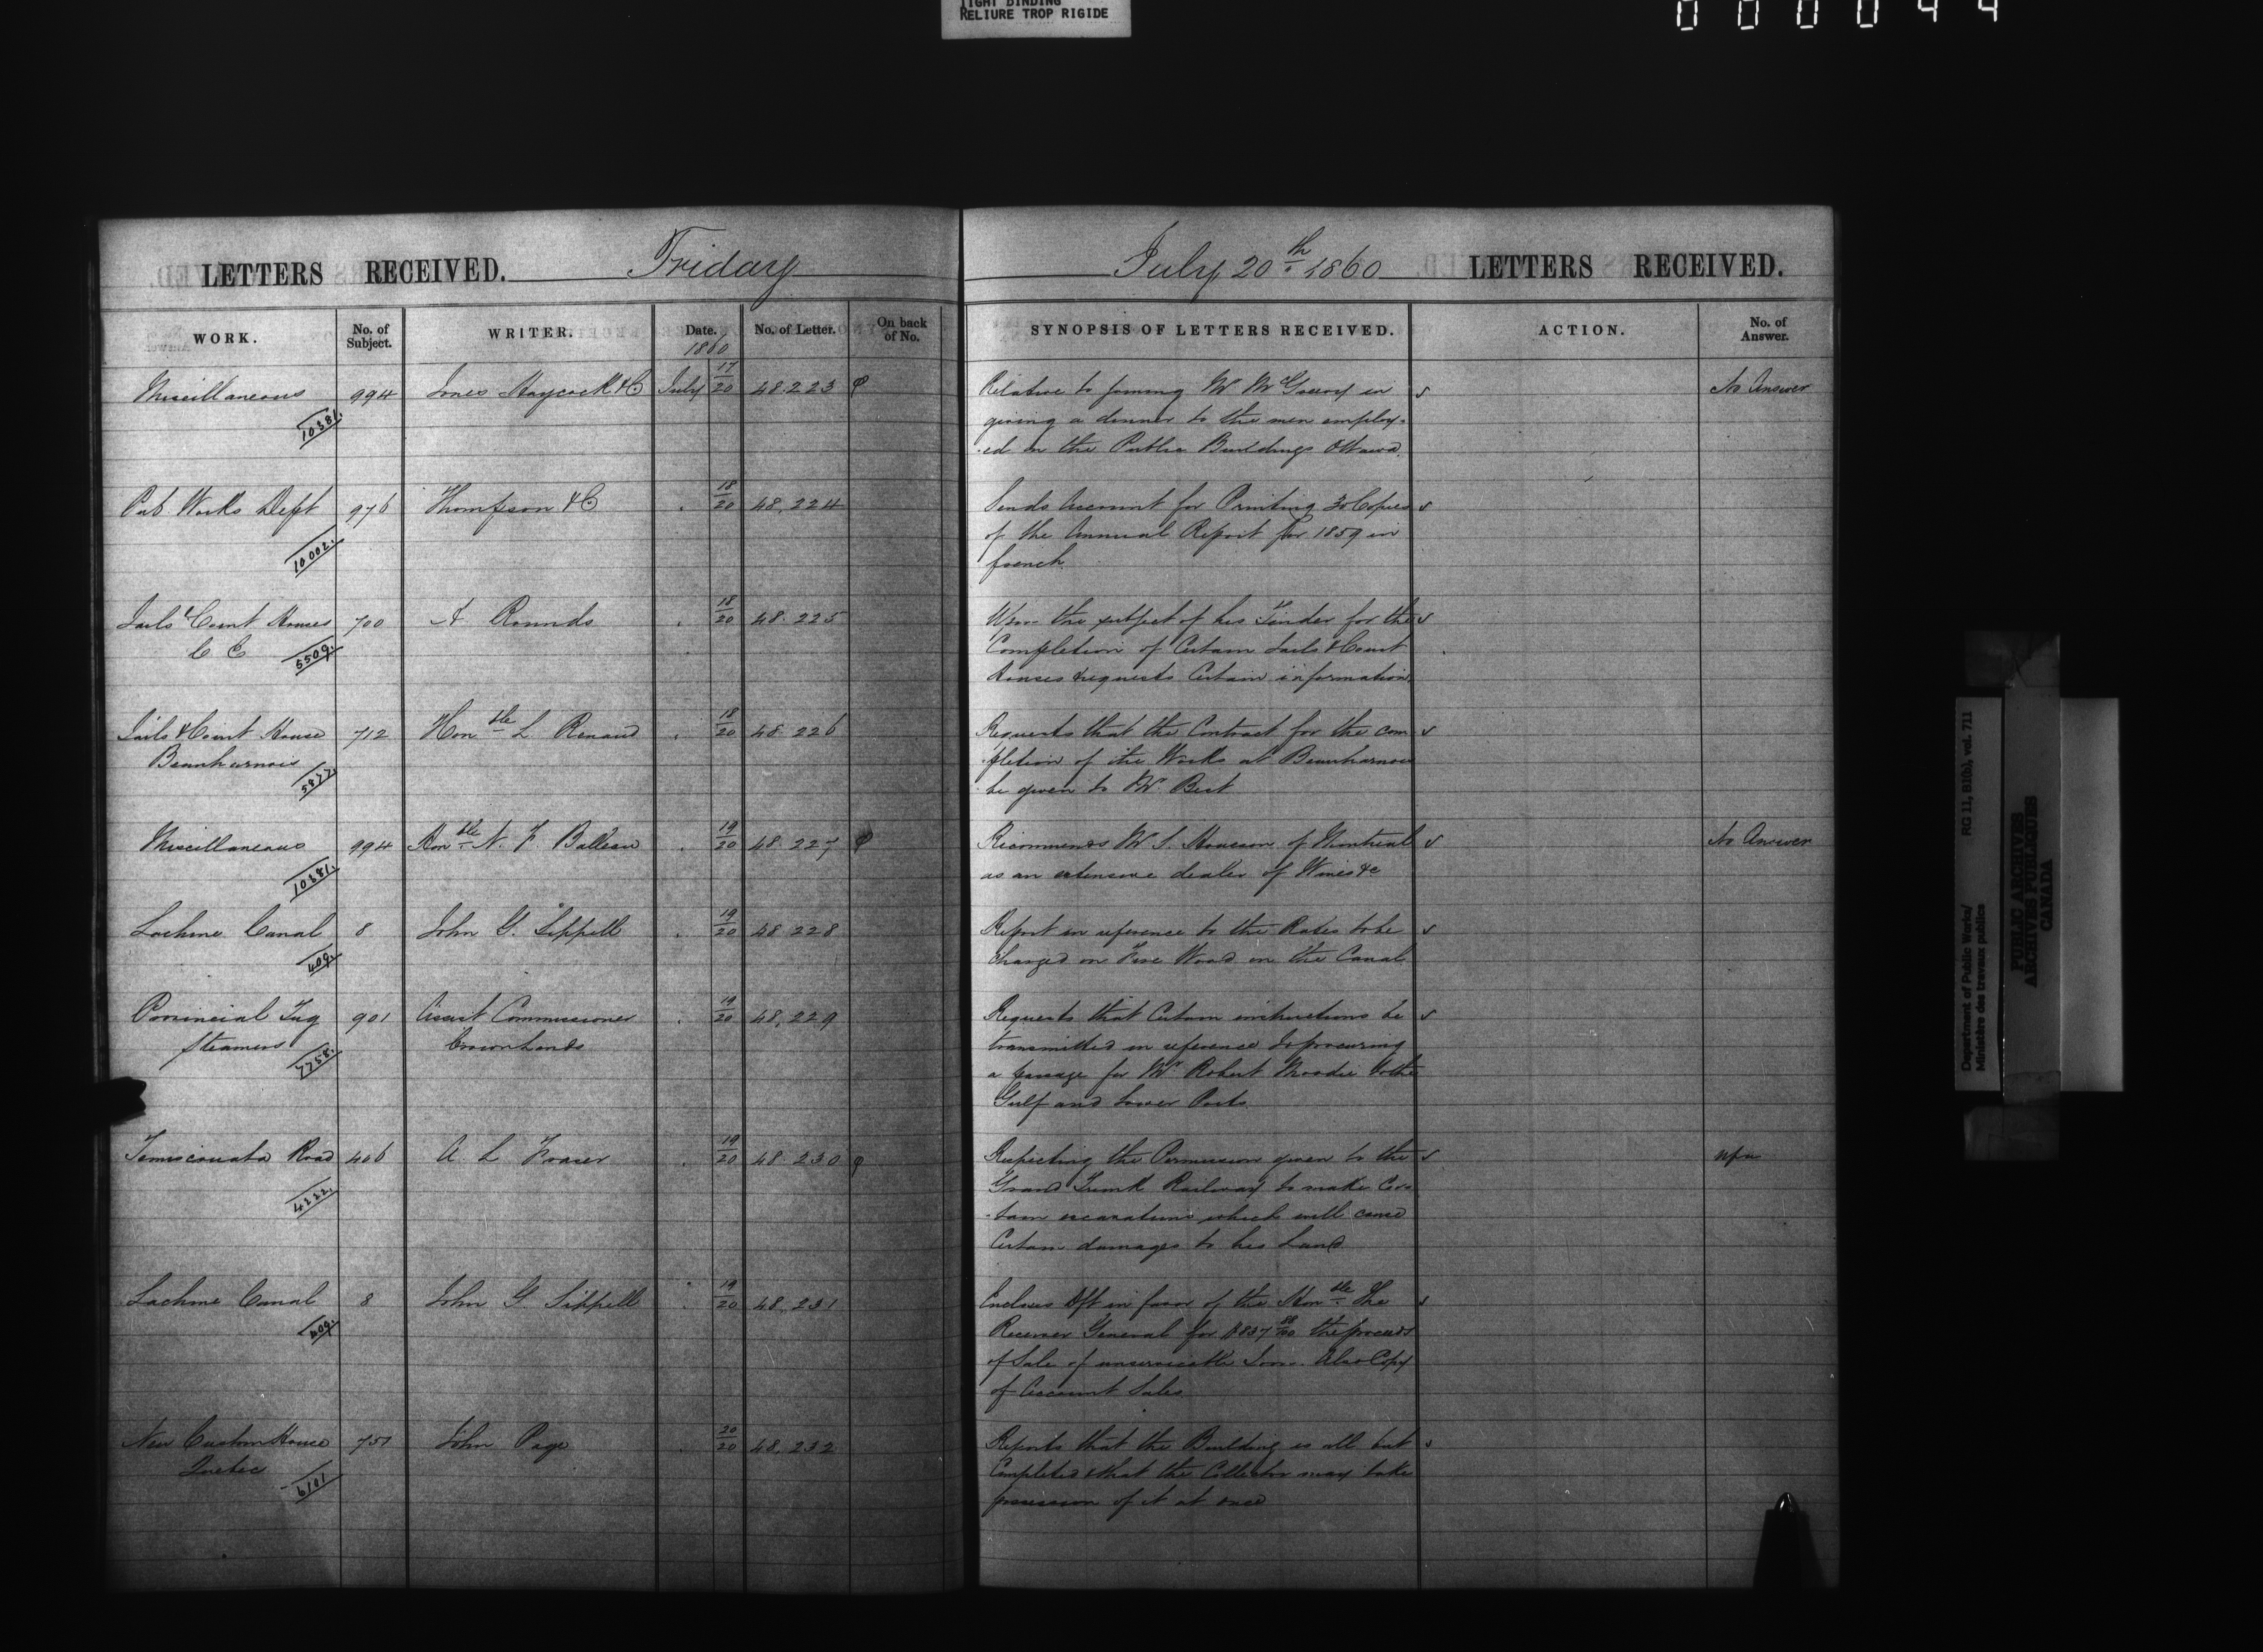 TIGHT BINDING
RELIURE TROP RIGIDE
000044
LETTERS RECEIVED. Friday
July 20th 1860 LETTERS RECEIVED.
WORK. No. of Subject. WRITER. Date. No. of Letter. On back of No. SYNOPSIS OF LETTERS RECEIVED. ACTION. No. of Answer.
1860
Miscellaneous 994 Jones Haycock & Co July 17/20 48.223 Relative to joining Mr McGreevy in No Answer
10381. giving a dinner to the men employ-
ed on the Public Buildings Ottawa.
Pub Works Dept 976 Thompson & Co 18/20 48,224 Sends Account for Printing 30 Copies
10002. of the Annual Report for 1859 in
french.
Jails & Court Houses 700 A Rounds 18/20 48.225 Upon the subject of his Tender for the
C E 5509. Completion of Certain Jails & Court
Houses & requests Certain information.
Jails & Court House 712 Honble L Renaud 18/20 48.226 Requests that the Contract for the com
Beauharnois 5877. pletion of the Works at Beauharnois
be given to Mr Best
Miscellaneous 994 Honble N. F Belleau 19/20 48.227 Recommends Mr S. of Montreal No Answer
10381. as an extensive dealer of Wines &c
Lachine Canal 8 John G. Sippell 19/20 48.228 Report in reference to the Rates to be
409. Charged on Fire Wood on the Canal
Provincial Tug 901 Assist Commissioner 19/20 48,229 Requests that Certain instructions be
Steamers 7758. Crown Lands transmitted in reference to procuring
a passage for Mr Robert Moodie to the
Gulf and Lower Ports
Temiscouata Road 406 A. L Fraser 19/20 48.230 Respecting the Permission given to the
4222. Grand Trunk Railway to make Cer-
tain excavations which will cause
Certain damages to his Land
Lachine Canal 8 John G Sippell 19/20 48,231 Encloses Dft in favor of the Honble The
409. Receiver General for $837 88/100 the proceeds
of Sale of unserviceable Iron. Also Copy
of Account Sales
New Custom House 751 John Page 20/20 48,232 Reports that the Building is all but
Quebec 6101 Completed & that the Collector may take
possession of it at once
Department of Public Works/
Ministère des travaux publics
RG 11, B1(b), vol. 711
PUBLIC ARCHIVES
ARCHIVES PUBLIQUES
CANADA